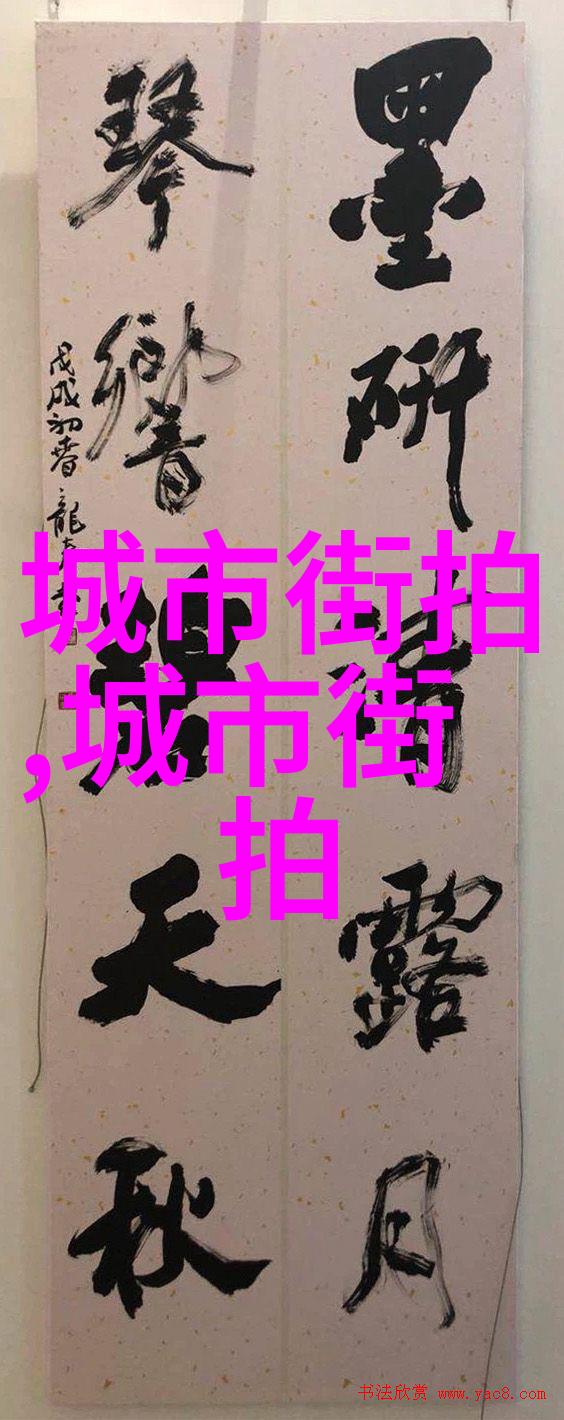 墨研清露月
琴響碧天秋
戊戌初春 龍
城市街拍
,城市街
拍
书法欣赏 www.yac8.com